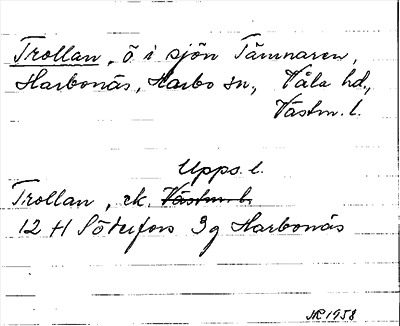 Trollan, ö i sjön Tämnaren,
Harbonäs, Harbo sn, Våla hd.,
Västm. l.
Upps. l.
Trollan, ek. Västm. l.
12 H Söderfors 3g Harbonäs
NE 1958